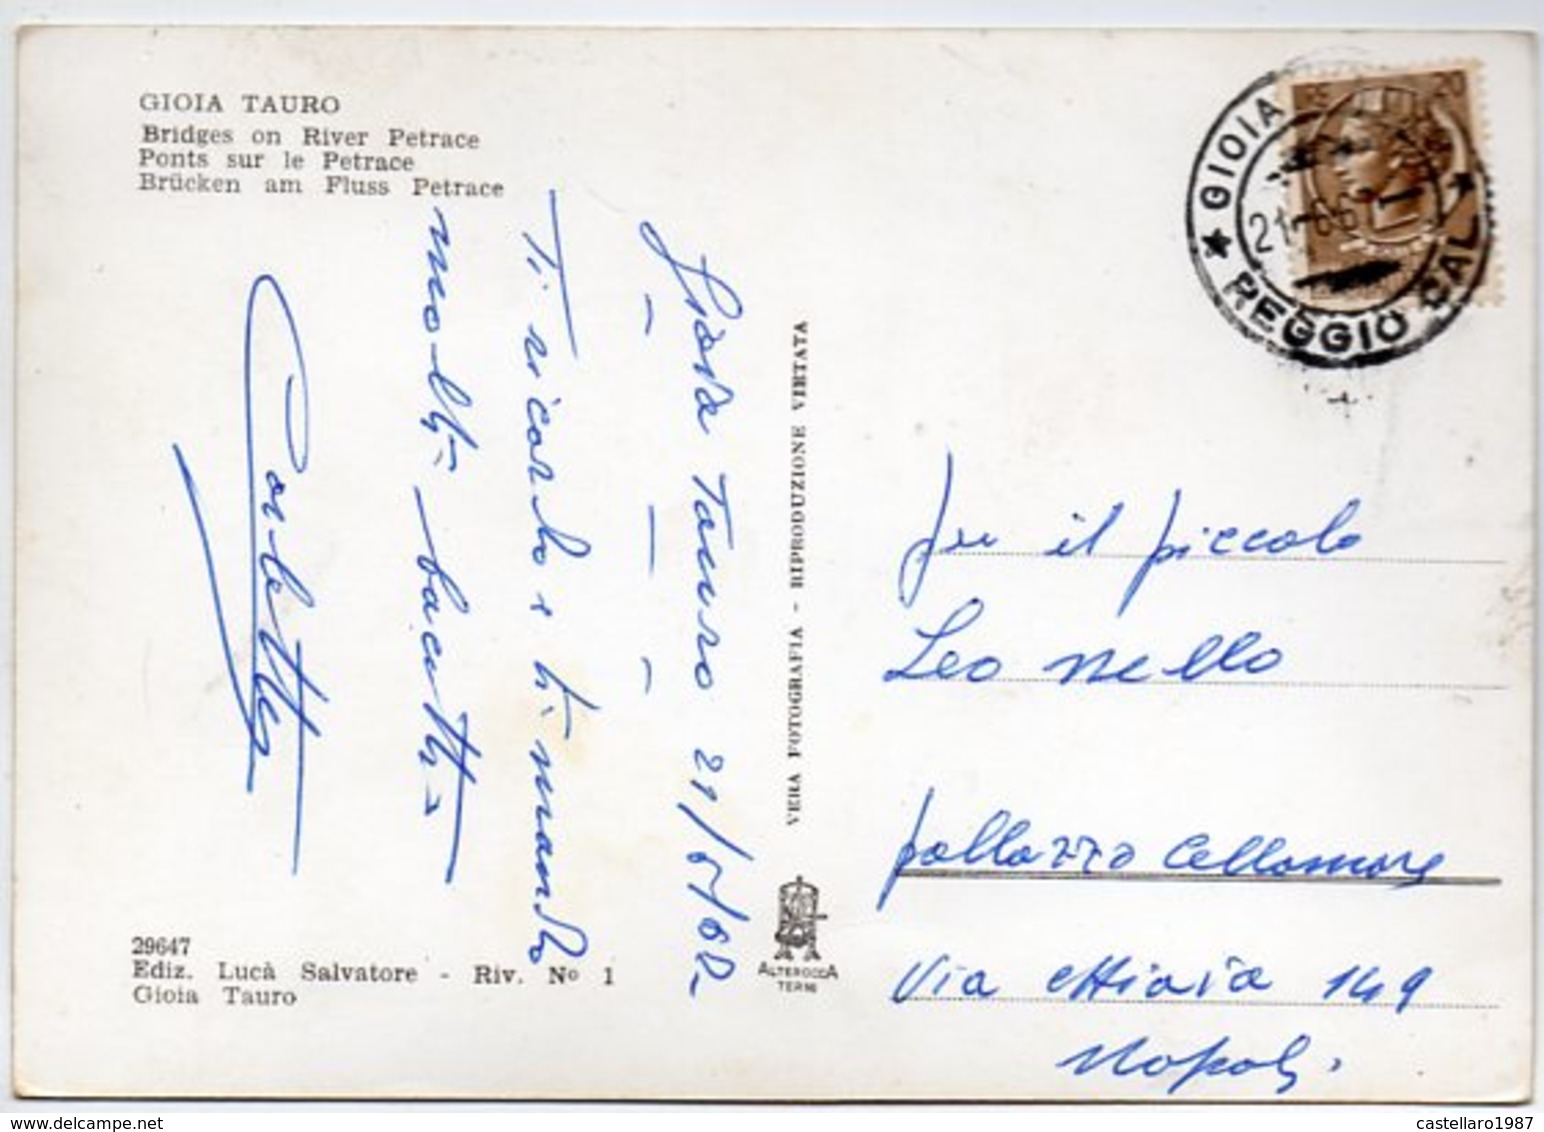 GIOIA TAURO
Bridges on River Petrace
Ponts sur le Petrace
Brücken am Fluss Petrace
Gioia Tauro 21/6/62
Ti ricordo e ti mando
molti bacetti
VERA FOTOGRAFIA - RIPRODUZIONE VIETATA
ALTEROCCA
TERNI
29647
Ediz. Lucà Salvatore - Riv. N° 1
Gioia Tauro
GIOIA
21-6-6
REGGIO CAL
20
Per il piccolo
Leo nello
pallazzo Cellamare
Via Chiaia 149
Napoli
castellaro1987